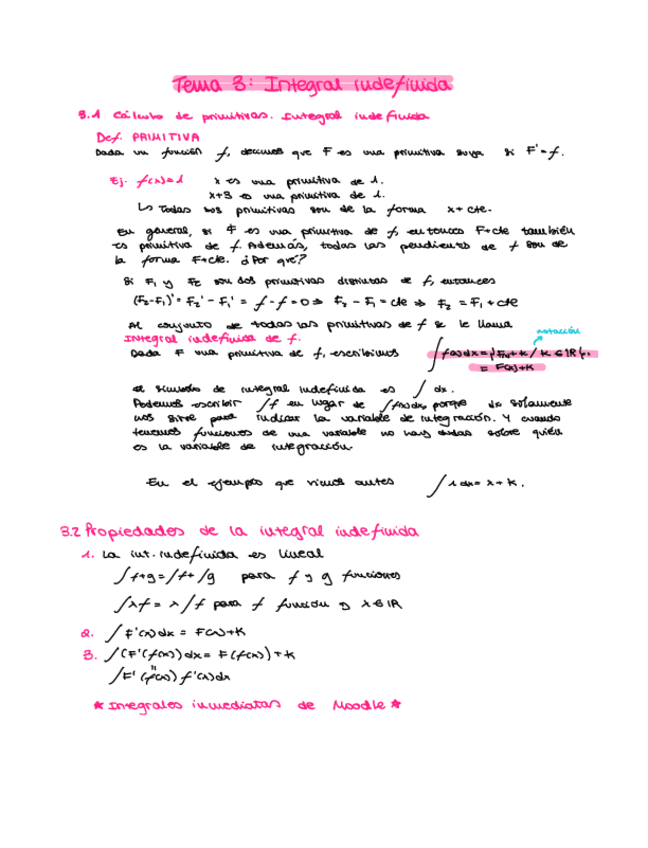 Tema 3: Integral indefinida
3.1 Cálculo de primitivas. Integral indefinida
Def. PRIMITIVA
Dada un función f, decimos que F es una primitiva suya si F' = f.
Ej. f(x)=1 x es una primitiva de 1.
x+3 es una primitiva de 1.
↳ Todas sus primitivas son de la forma x + cte.
En general, si F es una primitiva de f, entonces F+cte también
es primitiva de f. Además, todas las pendientes de f son de
la forma F+cte. ¿Por qué?
Si F₁ y F₂ son dos primitivas distintas de f, entonces
(F₂-F₁)' = F₂' - F₁' = f - f = 0 ⇒ F₂ - F₁ = cte ⇒ F₂ = F₁ + cte
Al conjunto de todas las primitivas de f se le llama
notación
Integral indefinida de f.
Dada F una primitiva de f, escribimos ∫ f(x)dx = {F(x)+K / K ∈ IR}
= F(x)+K
el símbolo de integral indefinida es ∫ dx.
Podemos escribir ∫f en lugar de ∫f(x)dx, porque dx solamente
nos sirve para indicar la variable de integración. Y cuando
tenemos funciones de una variable no hay dudas sobre quién
es la variable de integración.
En el ejemplo que vimos antes ∫ 1 dx = x + K.
3.2 Propiedades de la integral indefinida
1. La int. indefinida es lineal
∫f+g = ∫f + ∫g para f y g funciones
∫λf = λ∫f para f función y λ∈IR
2. ∫F'(x)dx = F(x)+K
3. ∫(F'(f(x))dx = F(f(x)) + K
"
∫F'(f(x)) f'(x)dx
★ Integrales inmediatas de Moodle ★